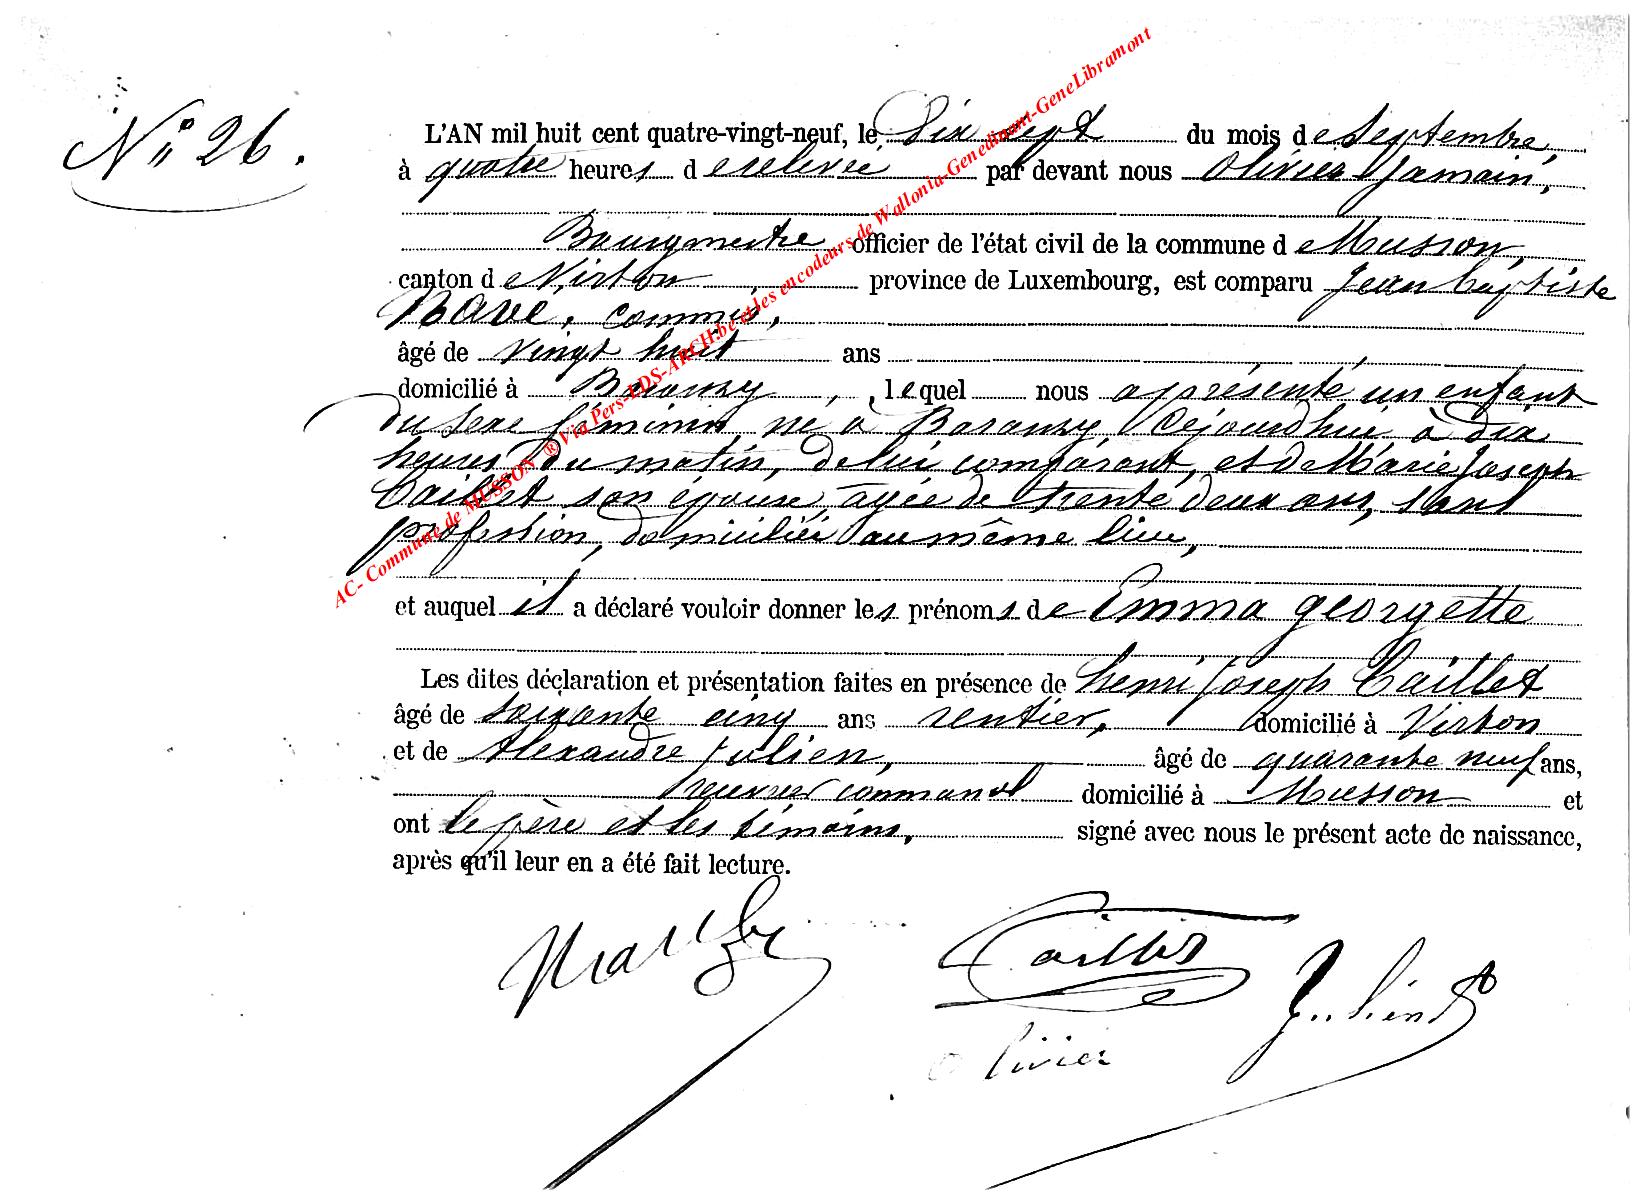 N° 26.
L'AN mil huit cent quatre-vingt-neuf, le dix sept du mois de Septembre,
à quatre heures de relevée par devant nous Olivier Jamain,
Bourgmestre officier de l'état civil de la commune de Musson,
canton de Virton province de Luxembourg, est comparu Jean Baptiste
commis,
âgé de vingt huit ans
domicilié à Baranzy, lequel nous a présenté un enfant
du sexe féminin, né à Baranzy, Cejourdhui à dix
heures du matin, de lui comparant, et de Marie Joseph
Caillet son épouse, agée de trente deux ans, sans
profession, domiciliés au même lieu,
et auquel il a déclaré vouloir donner les prénoms de Emma georgette
Les dites déclaration et présentation faites en présence de henri Joseph Caillet
âgé de soixante cinq ans rentier, domicilié à Virton
et de Alexandre Julien, âgé de quarante neuf ans,
receveur communal domicilié à Musson et
ont le père et les témoins, signé avec nous le présent acte de naissance,
après qu'il leur en a été fait lecture.
Caillet
Julien
Olivier
AC- Commune de MUSSON ® Via Pers-LDS-ARCH.be et les encodeurs de Wallonia-Genedinant-GeneLibramont